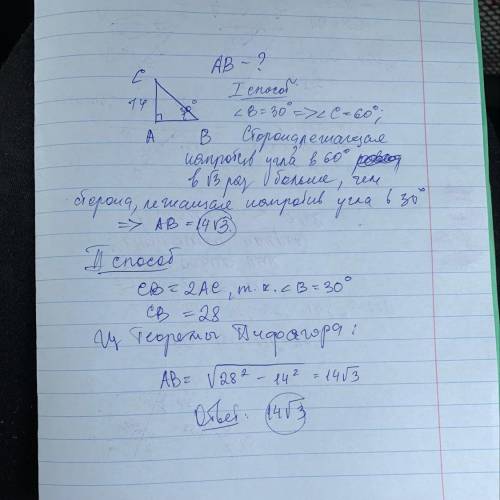 AB - ?
C
I способ
14
30°
∠B = 30° => ∠C = 60°;
A B Сторона, лежащая
напротив угла в 60°
в √3 раз больше, чем
сторона, лежащая напротив угла в 30°
=> AB = 14√3.
II способ
CB = 2AC, т.к. ∠B = 30°
CB = 28
Из Теоремы Пифагора:
AB = √28² - 14² = 14√3
Ответ: 14√3